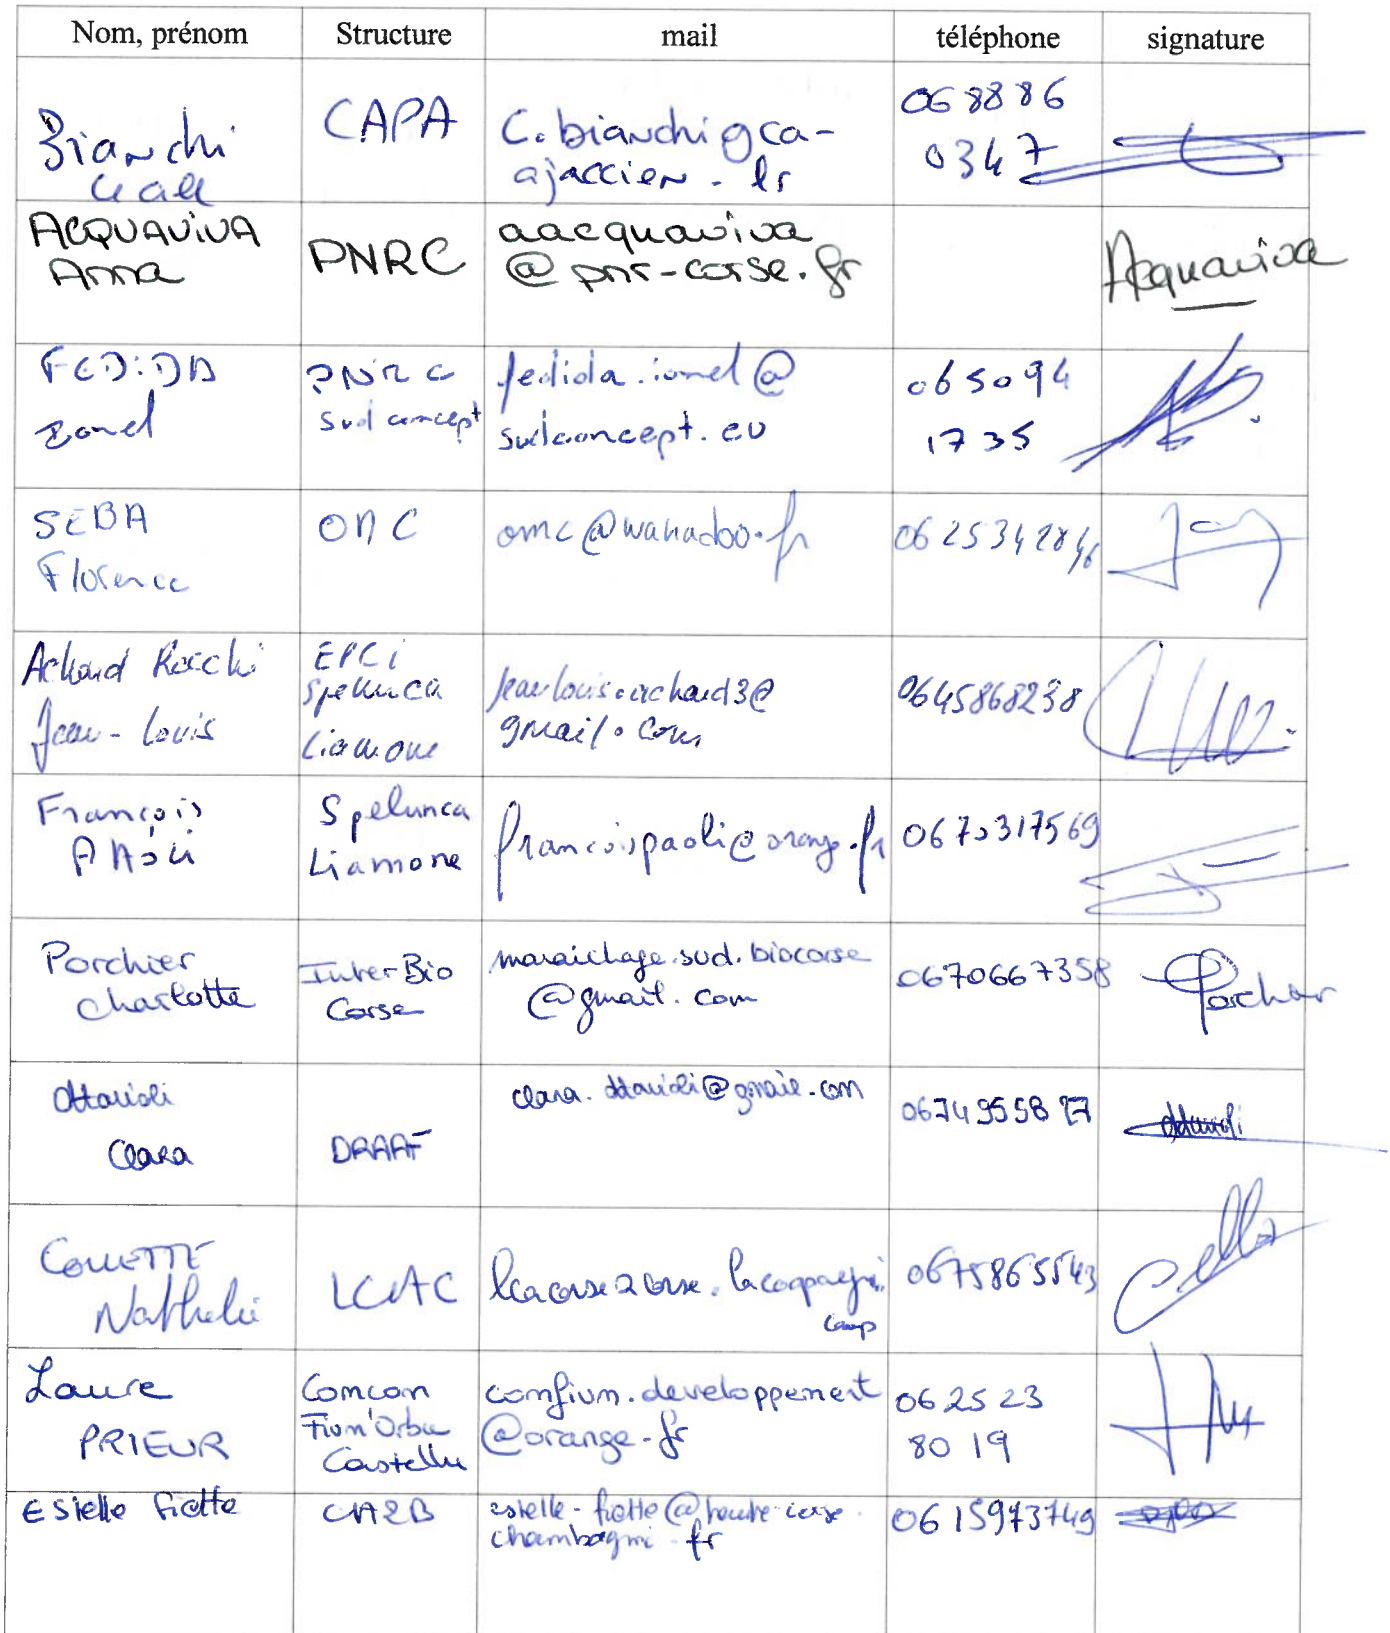 Nom, prénom Structure mail téléphone signature
Bianchi CAPA C.bianchi@ca-
ajaccien.fr 068886
0347
ACQUAVIVA
Anna PNRC aacquaviva
@pnr-corse.fr Acquaviva
FEDIDA
Ionel PNRC
Sud concept fedida.ionel@
sudconcept.eu 065094
1735
SEBA
Florence omc@wanadoo.fr
Achard Rocchi
Jean-Louis EPCi
Spelunca
Liamone jeanlouis.achard3@
gmail.com 0645868238
François
PAOLI Spelunca
Liamone francoispaoli@orange.fr
Porchier
Charlotte InterBio
Corse maraichage.sud.biocorse
@gmail.com 0670667358 Porchier
Ottavioli
Clara DRAAF clara.ottavioli@gmail.com
COLLETTE
Nathalie LCAC 0675865543
Laure
PRIEUR Comcom
Fium'Orbu
Castellu comfium.developpement
@orange.fr 062523
8019
Estelle Fiette CA2B 0615973749